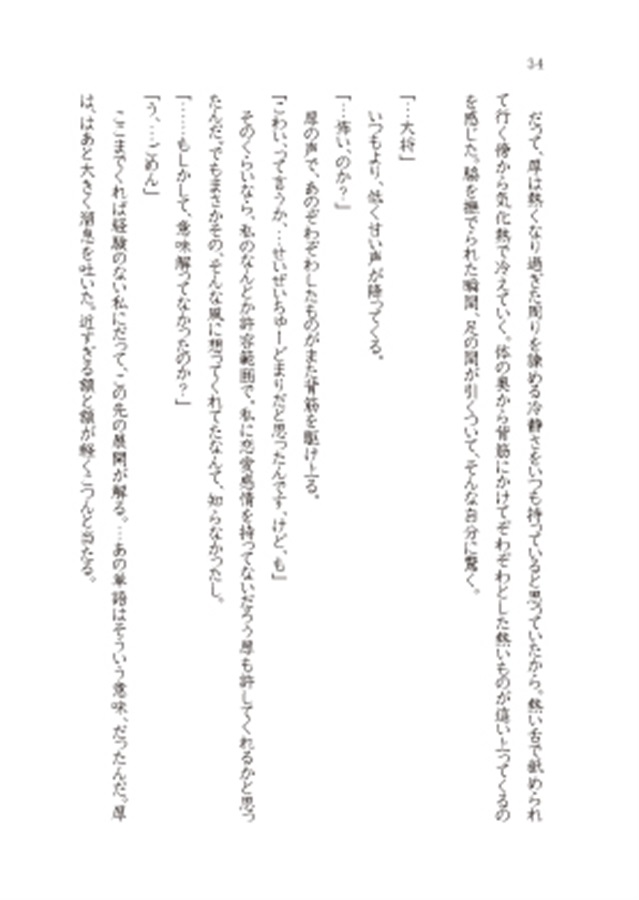 34
だって、厚は熱くなり過ぎた周りを諫める冷静さをいつも持っていると思っていたから。熱い舌で舐められ
て行く傍から気化熱で冷えていく。体の奥から背筋にかけてぞわぞわとした熱いものが這い上ってくるの
を感じた。脇を撫でられた瞬間、足の間が引くついて、そんな自分に驚く。
「…大将」
いつもより、低く甘い声が降ってくる。
「…怖い、のか?」
厚の声で、あのぞわぞわしたものがまた背筋を駆け上る。
「こわい、って言うか、…せいぜいちゅーどまりだと思ったんです、けど、も」
そのくらいなら、私のなんとか許容範囲で。私に恋愛感情を持ってないだろう厚も許してくれるかと思っ
たんだ。でもまさかその、そんな風に想ってくれてたなんて、知らなかったし。
「……もしかして、意味解ってなかったのか?」
「う、…ごめん」
ここまでくれば経験のない私にだって、この先の展開が解る。…あの単語はそういう意味、だったんだ。厚
は、はあと大きく溜息を吐いた。近すぎる額と額が軽くこつんと当たる。